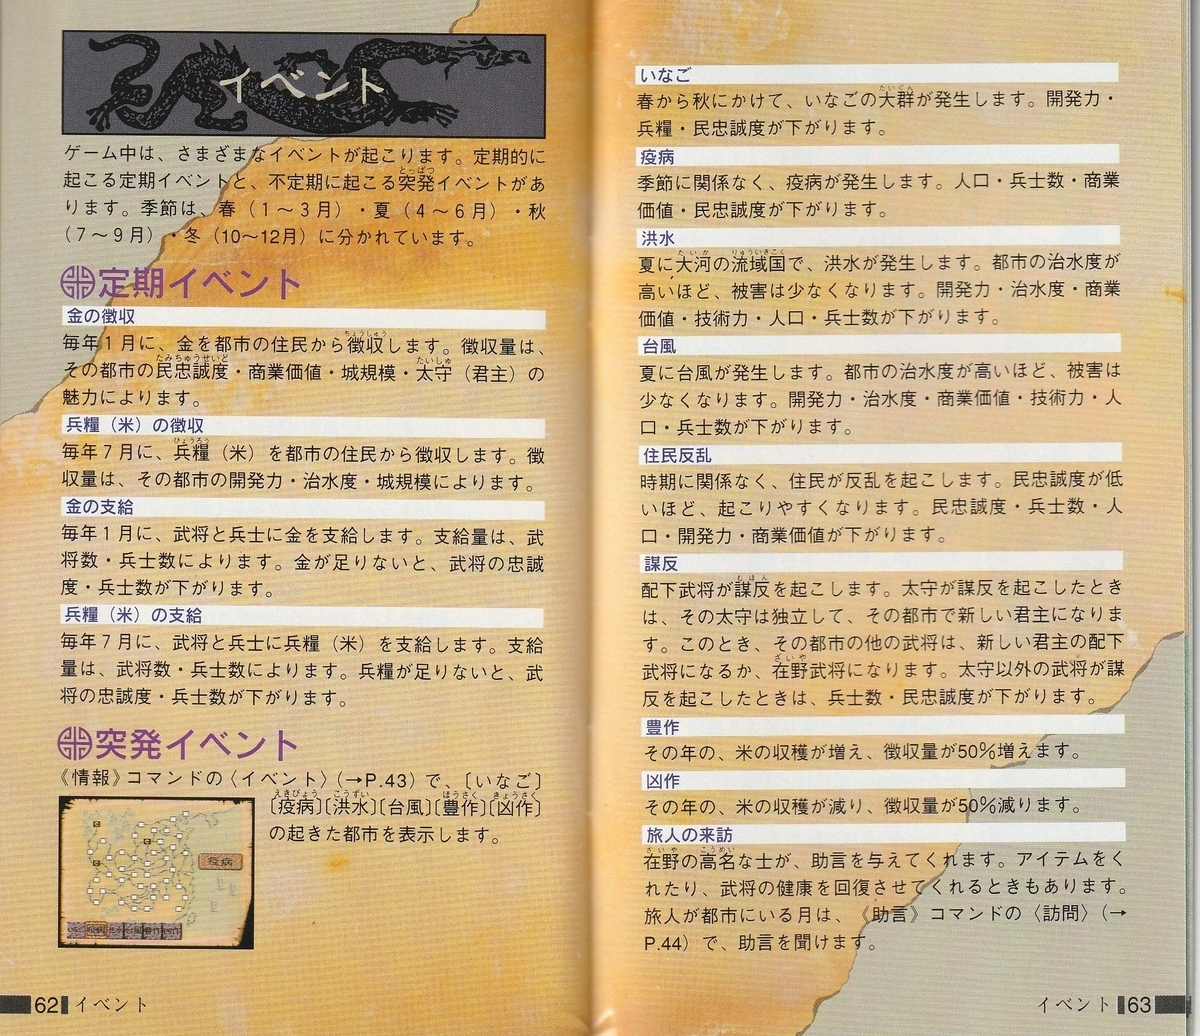 イベント
ゲーム中は、さまざまなイベントが起こります。定期的に
起こる定期イベントと、不定期に起こる突発イベントがあ
ります。季節は、春（1～3月）・夏（4～6月）・秋
（7～9月）・冬（10～12月）に分かれています。
定期イベント
金の徴収
毎年1月に、金を都市の住民から徴収します。徴収量は、
その都市の民忠誠度・商業価値・城規模・太守（君主）の
魅力によります。
兵糧（米）の徴収
毎年7月に、兵糧（米）を都市の住民から徴収します。徴
収量は、その都市の開発力・治水度・城規模によります。
金の支給
毎年1月に、武将と兵士に金を支給します。支給量は、武
将数・兵士数によります。金が足りないと、武将の忠誠
度・兵士数が下がります。
兵糧（米）の支給
毎年7月に、武将と兵士に兵糧（米）を支給します。支給
量は、武将数・兵士数によります。兵糧が足りないと、武
将の忠誠度・兵士数が下がります。
突発イベント
《情報》コマンドの〈イベント〉（→P.43）で、〔いなご〕
〔疫病〕〔洪水〕〔台風〕〔豊作〕〔凶作〕
の起きた都市を表示します。
疫病
62 イベント
いなご
春から秋にかけて、いなごの大群が発生します。開発力・
兵糧・民忠誠度が下がります。
疫病
季節に関係なく、疫病が発生します。人口・兵士数・商業
価値・民忠誠度が下がります。
洪水
夏に大河の流域国で、洪水が発生します。都市の治水度が
高いほど、被害は少なくなります。開発力・治水度・商業
価値・技術力・人口・兵士数が下がります。
台風
夏に台風が発生します。都市の治水度が高いほど、被害は
少なくなります。開発力・治水度・商業価値・技術力・人
口・兵士数が下がります。
住民反乱
時期に関係なく、住民が反乱を起こします。民忠誠度が低
いほど、起こりやすくなります。民忠誠度・兵士数・人
口・開発力・商業価値が下がります。
謀反
配下武将が謀反を起こします。太守が謀反を起こしたとき
は、その太守は独立して、その都市で新しい君主になりま
す。このとき、その都市の他の武将は、新しい君主の配下
武将になるか、在野武将になります。太守以外の武将が謀
反を起こしたときは、兵士数・民忠誠度が下がります。
豊作
その年の、米の収穫が増え、徴収量が50%増えます。
凶作
その年の、米の収穫が減り、徴収量が50%減ります。
旅人の来訪
在野の高名な士が、助言を与えてくれます。アイテムをく
れたり、武将の健康を回復させてくれるときもあります。
旅人が都市にいる月は、《助言》コマンドの〈訪問〉（→
P.44）で、助言を聞けます。
イベント 63